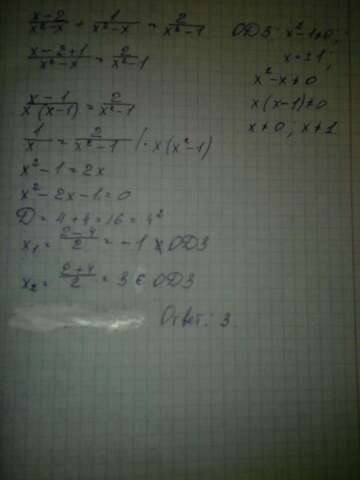 (x-2)/(x²-x) + 1/(x²-x) = 2/(x²-1)
ОДЗ: x²-1≠0;
(x-2+1)/(x²-x) = 2/(x²-1)
x≠±1;
x²-x≠0
(x-1)/(x(x-1)) = 2/(x²-1)
x(x-1)≠0
x≠0, x≠1
1/x = 2/(x²-1) | · x(x²-1)
x²-1=2x
x²-2x-1=0
D=4+4=16=4²
x₁ = (2-4)/2 = -1 ∉ ОДЗ
x₂ = (2+4)/2 = 3 ∈ ОДЗ
Ответ: 3.